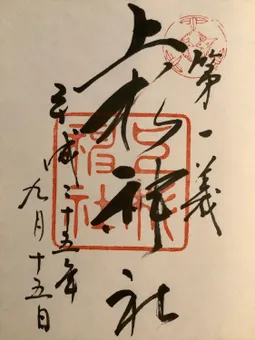 第一義
上杉神社
平成二十五年九月十五日